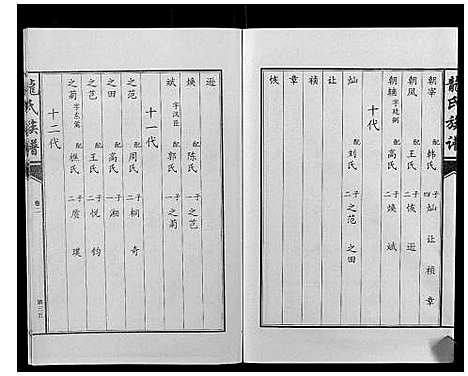 龍氏族谱
朝宰 配韩氏 四子 灿 让 桢 章
朝凤 配王氏 二子 恢 逊
朝辅 字廷弼 配高氏 二子 焕 斌
十代
灿 配刘氏 二子 之范 之田
让
桢
章
恢
逊
焕 配陈氏 一子 之芑
斌 字汉臣 配郭氏 一子 之菊
十一代
之范 配周氏 二子 桐 奇
之田 配高氏 一子 湘
之芑 配王氏 二子 悦 钧
之菊 字东篱 配樵氏 二子 广 璞
十二代
龍氏族譜
卷二